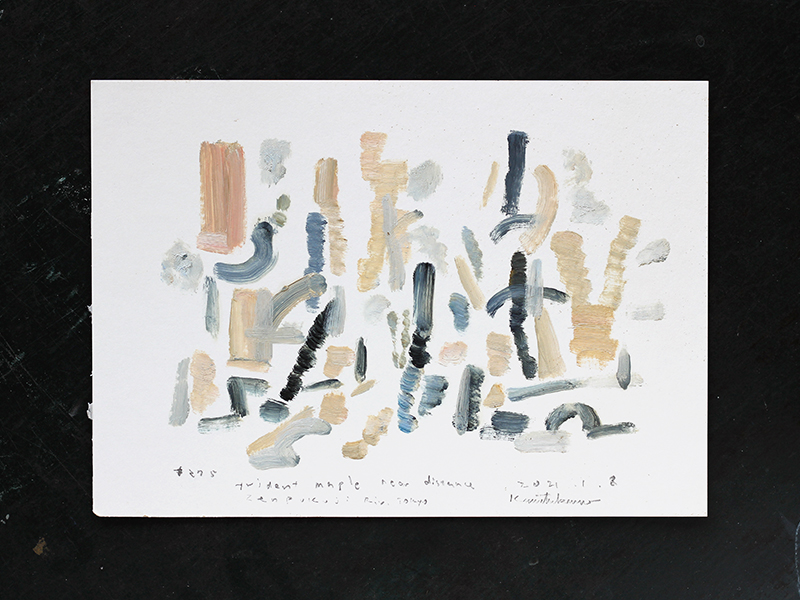 #275
trident maple near distance, 2021.1.8
Zenpukuji Riv. Tokyo